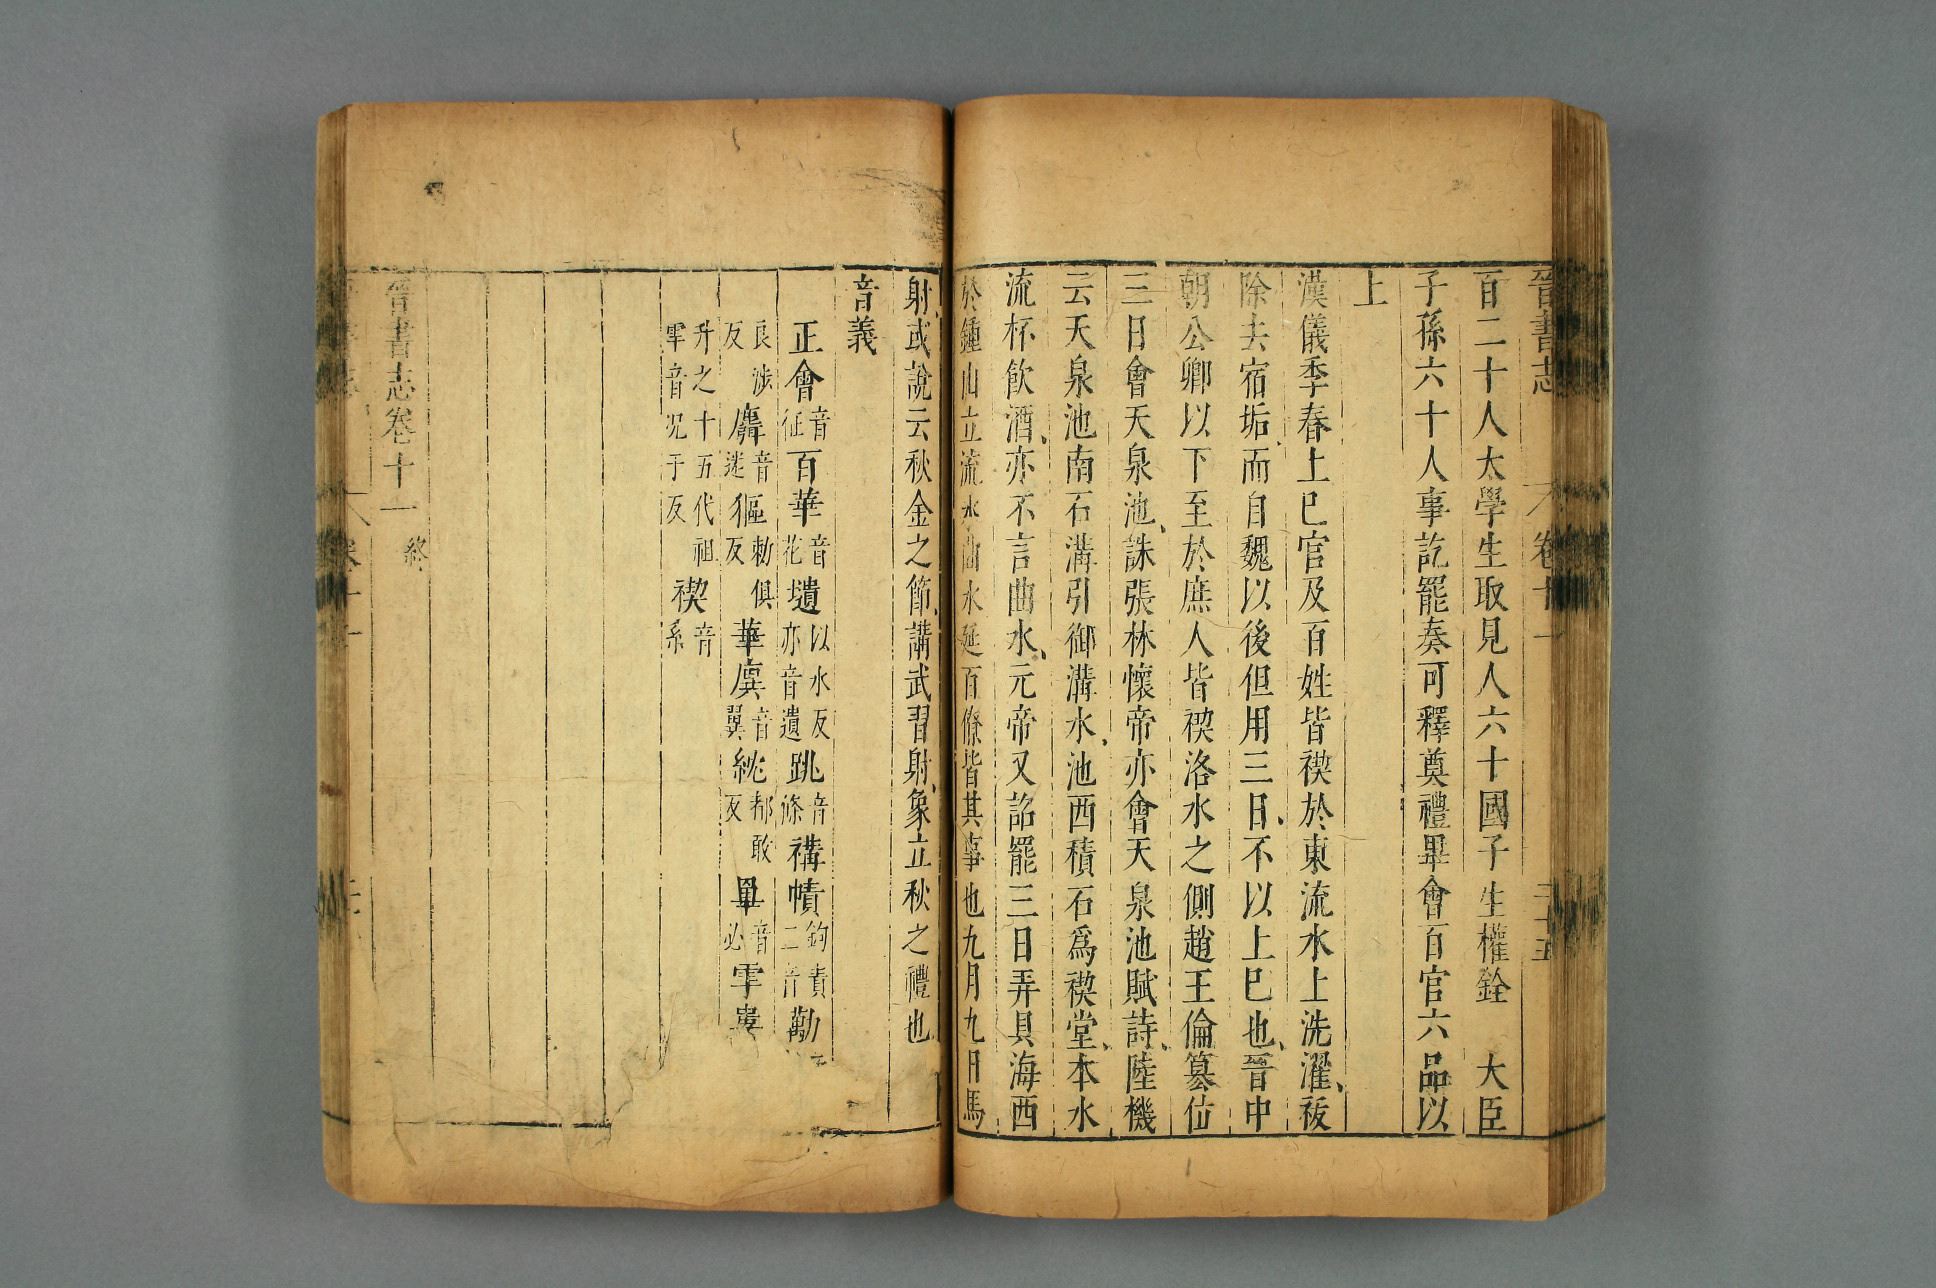 晉書志 卷十一 二十五
百二十人太學生取見人六十國子生權銓 大臣
子孫六十人事訖罷奏可釋奠禮畢會百官六品以
上
漢儀季春上巳官及百姓皆禊於東流水上洗濯祓
除去宿垢而自魏以後但用三日不以上巳也晉中
朝公卿以下至於庶人皆禊洛水之側趙王倫篡位
三日會天泉池誅張林懷帝亦會天泉池賦詩陸機
云天泉池南石溝引御溝水池西積石爲禊堂本水
流杯飲酒亦不言曲水元帝又詔罷三日弄具海西
於鍾山立流水曲水延百僚皆其事也九月九日馬
射或說云秋金之節講武習射象立秋之禮也
音義
正會音征百華音花壝以水反亦音遺跳音滌褠幘鉤責二音勷
良涉反麛音迷貙敕俱反華廙音翼紞都敢反畢音必雩婁
升之十五代祖雩音況于反禊音系
晉書志卷十一 終